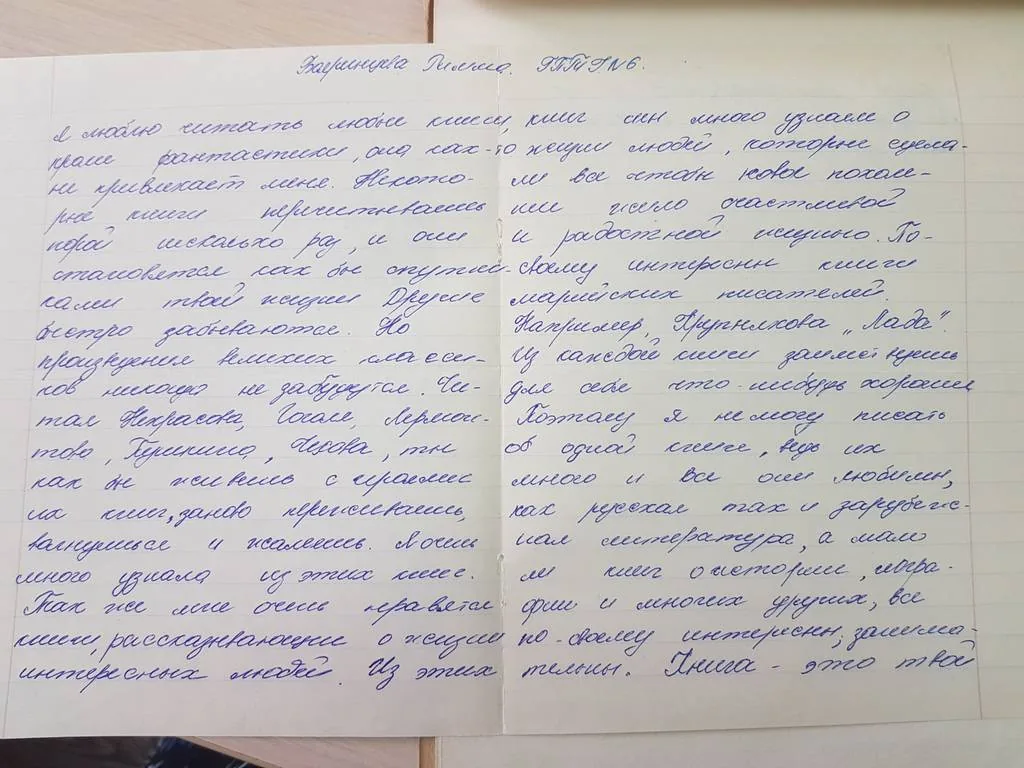 Багринцева Римма. ЯТТТ №6.
Я люблю читать любые книги,
кроме фантастики, она как-то
не привлекает меня. Некото-
рые книги перечитываешь
порой несколько раз, и они
становятся как бы спутни-
ками твоей жизни Другие
быстро забываются. Но
произведения великих класси-
ков никогда не забудутся. Чи-
тая Некрасова, Гоголя, Лермон-
това, Пушкина, Чехова, ты
как бы живешь с героями
их книг, заново переживаешь,
волнуешься и жалеешь. Я очень
много узнала из этих книг.
Так же мне очень нравятся
книги, рассказывающие о жизни
интересных людей. Из этих
книг мы много узнаем о
жизни людей, которые сдела-
ли все чтобы новое поколе-
ние жило счастливой
и радостной жизнью. По-
своему интересны книги
марийских писателей.
Например, Крупнякова „Лада".
Из каждой книги заимствуешь
для себя что-нибудь хорошее
Поэтому я не могу писать
об одной книге, ведь их
много и все они любимы,
как русская так и зарубеж-
ная литература, а мало
ли книг о истории,
и многих других, все
по-своему интересны, занима-
тельны. Книга - это твой